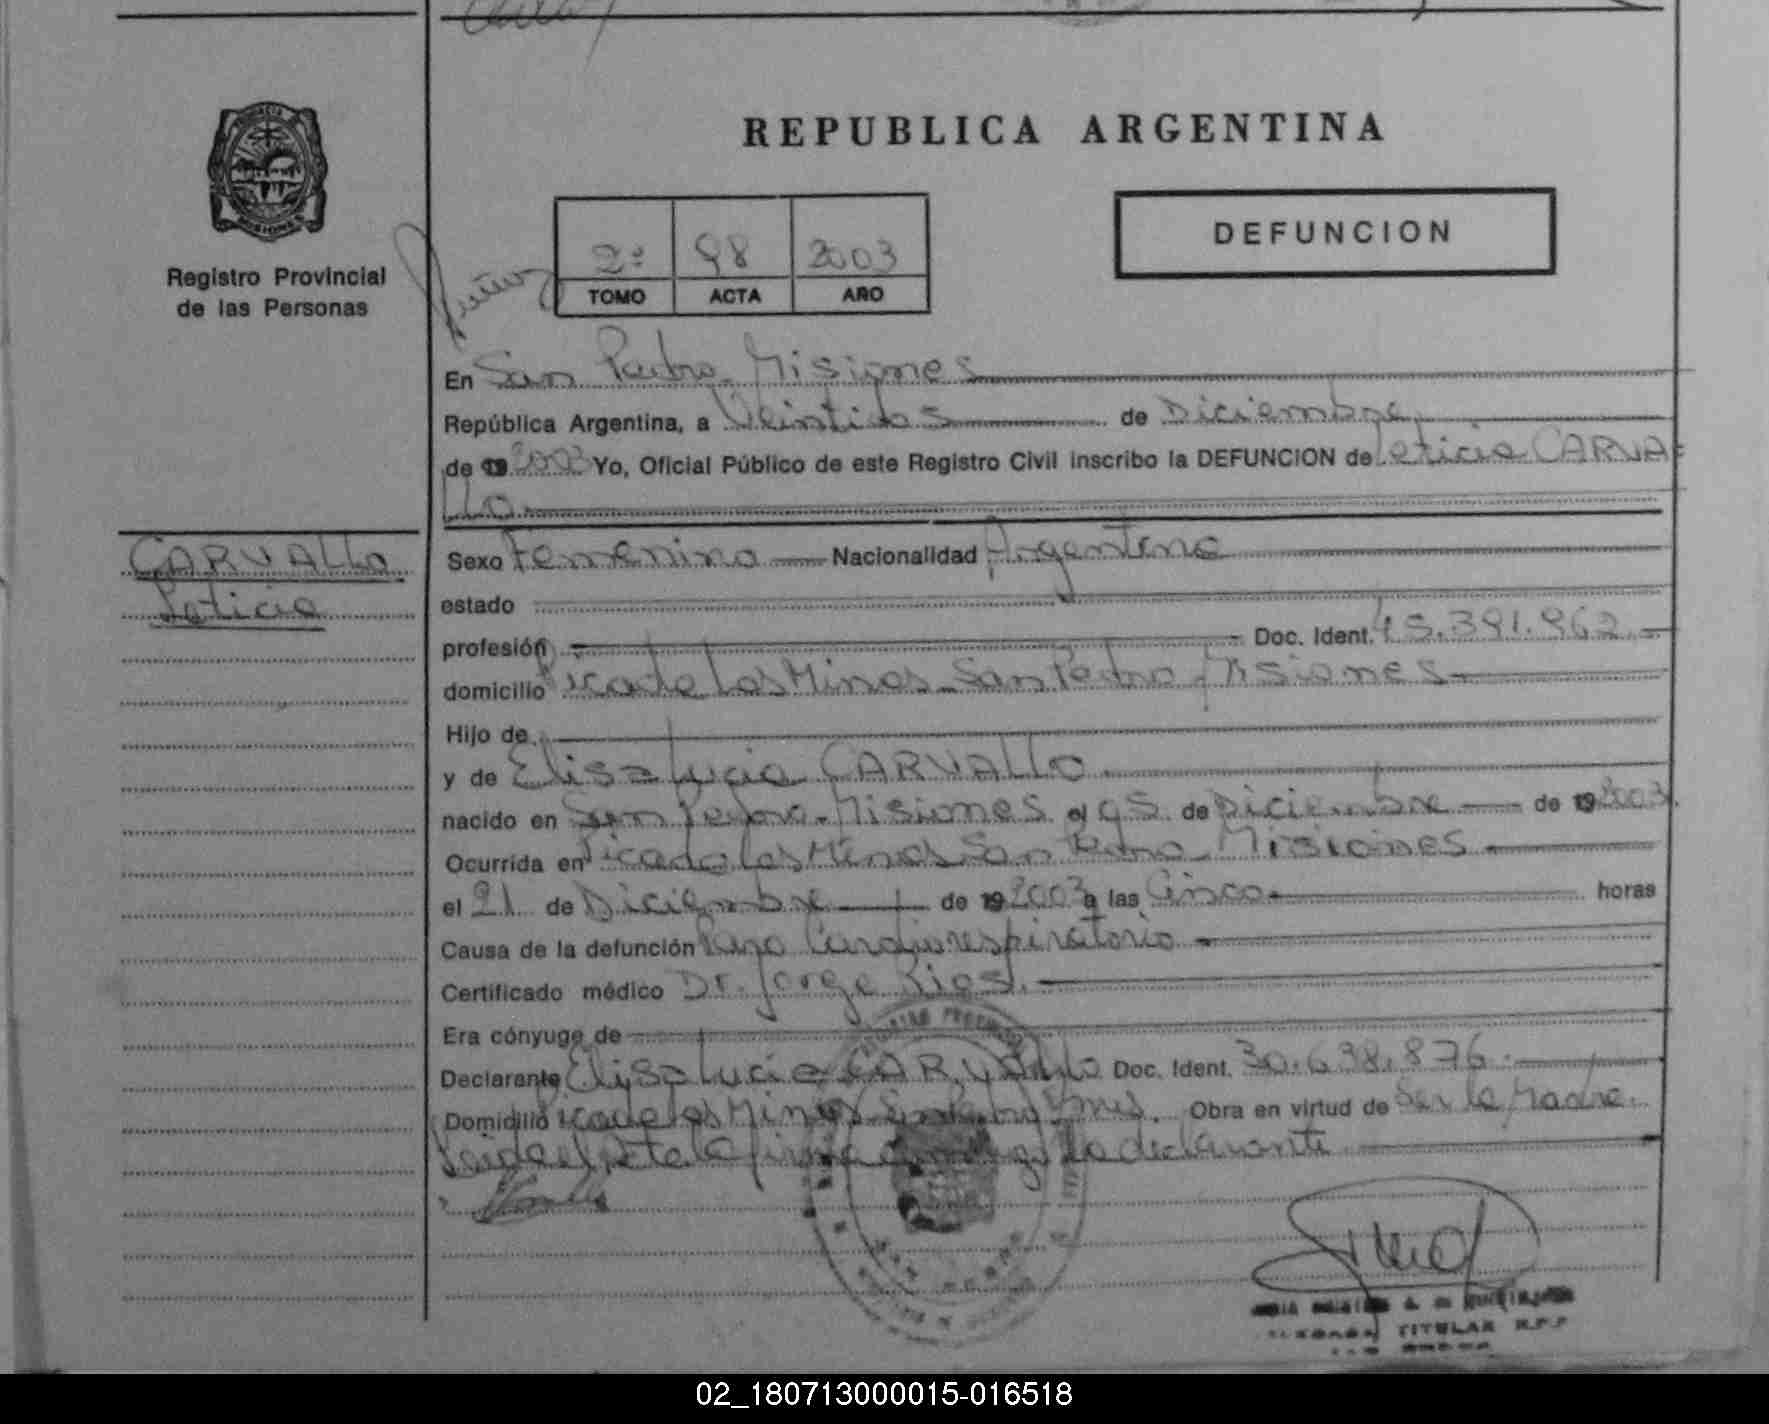 REPUBLICA ARGENTINA
DEFUNCION
Registro Provincial
de las Personas
2º 98 2003
TOMO ACTA AÑO
En San Pedro Misiones
República Argentina, a Veintidos de Diciembre
de 19 2003 Yo, Oficial Público de este Registro Civil inscribo la DEFUNCION de Leticia CARVA=
LLO
CARVALLO
Leticia
Sexo Femenino Nacionalidad Argentina
estado
profesión Doc. Ident.
domicilio Picada Los Minos San Pedro Misiones
Hijo de
y de Elisa Lucia CARVALLO
nacido en San Pedro Misiones el 05 de Diciembre de 19 2003
Ocurrida en Picada Los Minos San Pedro Misiones
el 21 de Diciembre de 19 2003 a las Cinco horas
Causa de la defunción Paro Cardiorespiratorio
Certificado médico Dr. Jorge Rios.
Era cónyuge de
Declarante Elisa Lucia CARVALLO Doc. Ident. 30.638.876
Domicilio Picada Los Minos San Pedro Mnes. Obra en virtud de Ser la Madre.
Leida el Acta la firma conmigo la declarante
TITULAR R.P.P
02_180713000015-016518